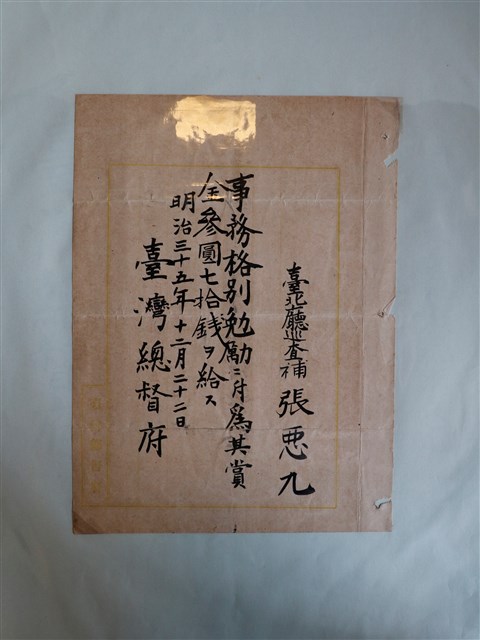 臺北廳巡査補 張悪九
事務格別勉励ニ付為其賞
金參圓七拾錢ヲ給ス
明治三十五年十二月二十二日
臺灣總督府